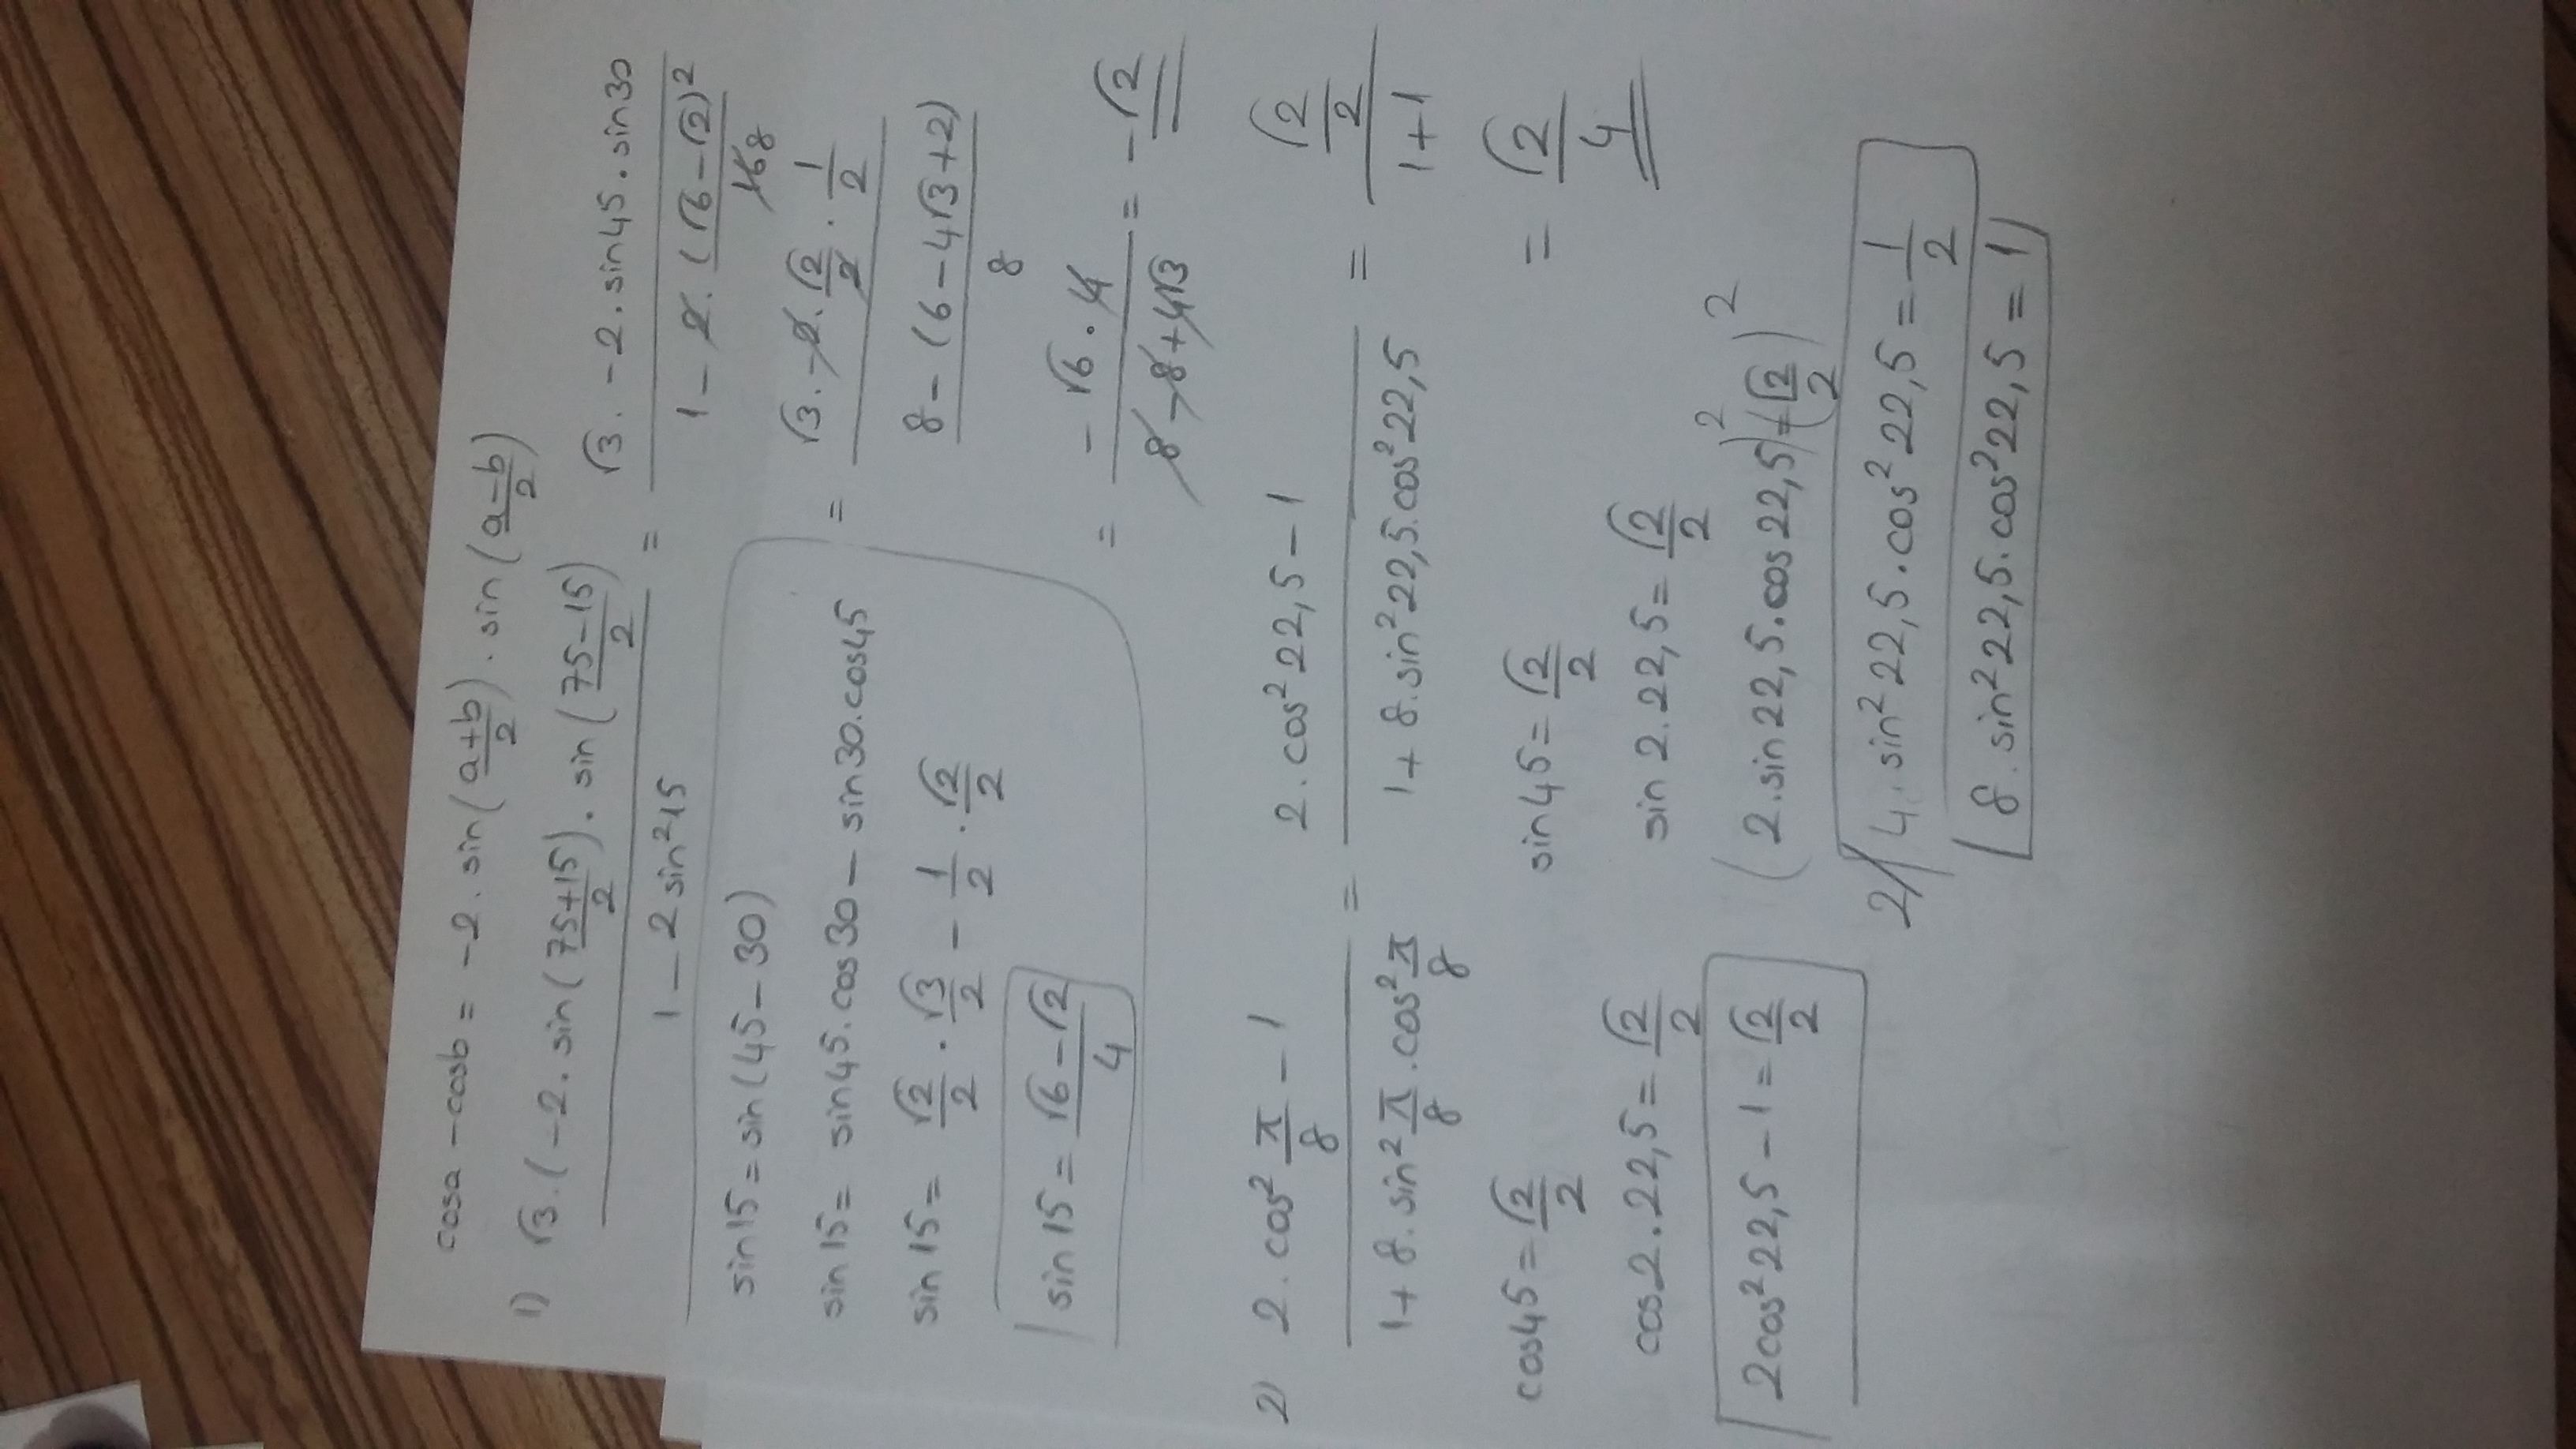 cosa - cosb = -2 . sin(a+b/2) . sin(a-b/2)
1) √3 . (-2 . sin(75+15/2) . sin(75-15/2) / 1 - 2 sin²15 = √3 . -2 . sin45 . sin30 / 1 - 2 . (√6 - √2)² / 16 8
= √3 . -2 . √2/2 . 1/2 / 8 - (6 - 4√3 + 2) / 8
= -√6 . 4 / 8 - 8 + 4√3 = -√2
sin15 = sin(45 - 30)
sin15 = sin45 . cos30 - sin30 . cos45
sin15 = √2/2 . √3/2 - 1/2 . √2/2
sin15 = √6 - √2 / 4
2) 2 . cos² π/8 - 1 / 1 + 8 . sin² π/8 . cos² π/8 = 2 . cos² 22,5 - 1 / 1 + 8 . sin² 22,5 . cos² 22,5 = √2/2 / 1 + 1
= √2/4
cos45 = √2/2
cos2 . 22,5 = √2/2
2cos² 22,5 - 1 = √2/2
sin45 = √2/2
sin2 . 22,5 = √2/2
(2 . sin22,5 . cos22,5)² = (√2/2)²
2/ 4 . sin² 22,5 . cos² 22,5 = 1/2
8 . sin² 22,5 . cos² 22,5 = 1